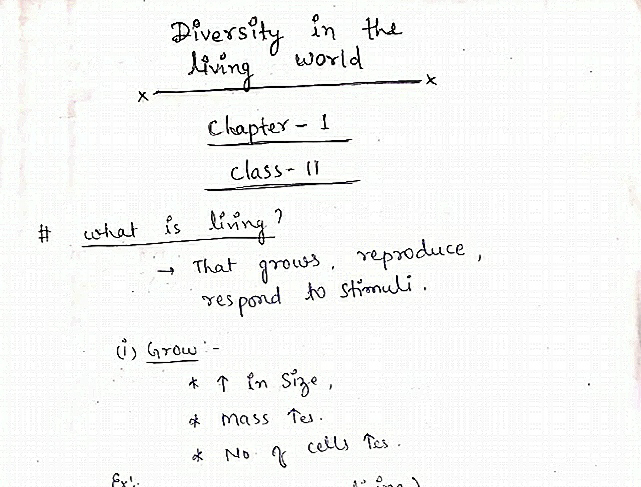 Diversity in the
living world
x x
Chapter - 1
Class - 11
# what is living?
→ That grows, reproduce,
respond to stimuli.
(i) Grow :-
* ↑ in Size,
* mass ↑es.
* No. of cells ↑es.
Ex: